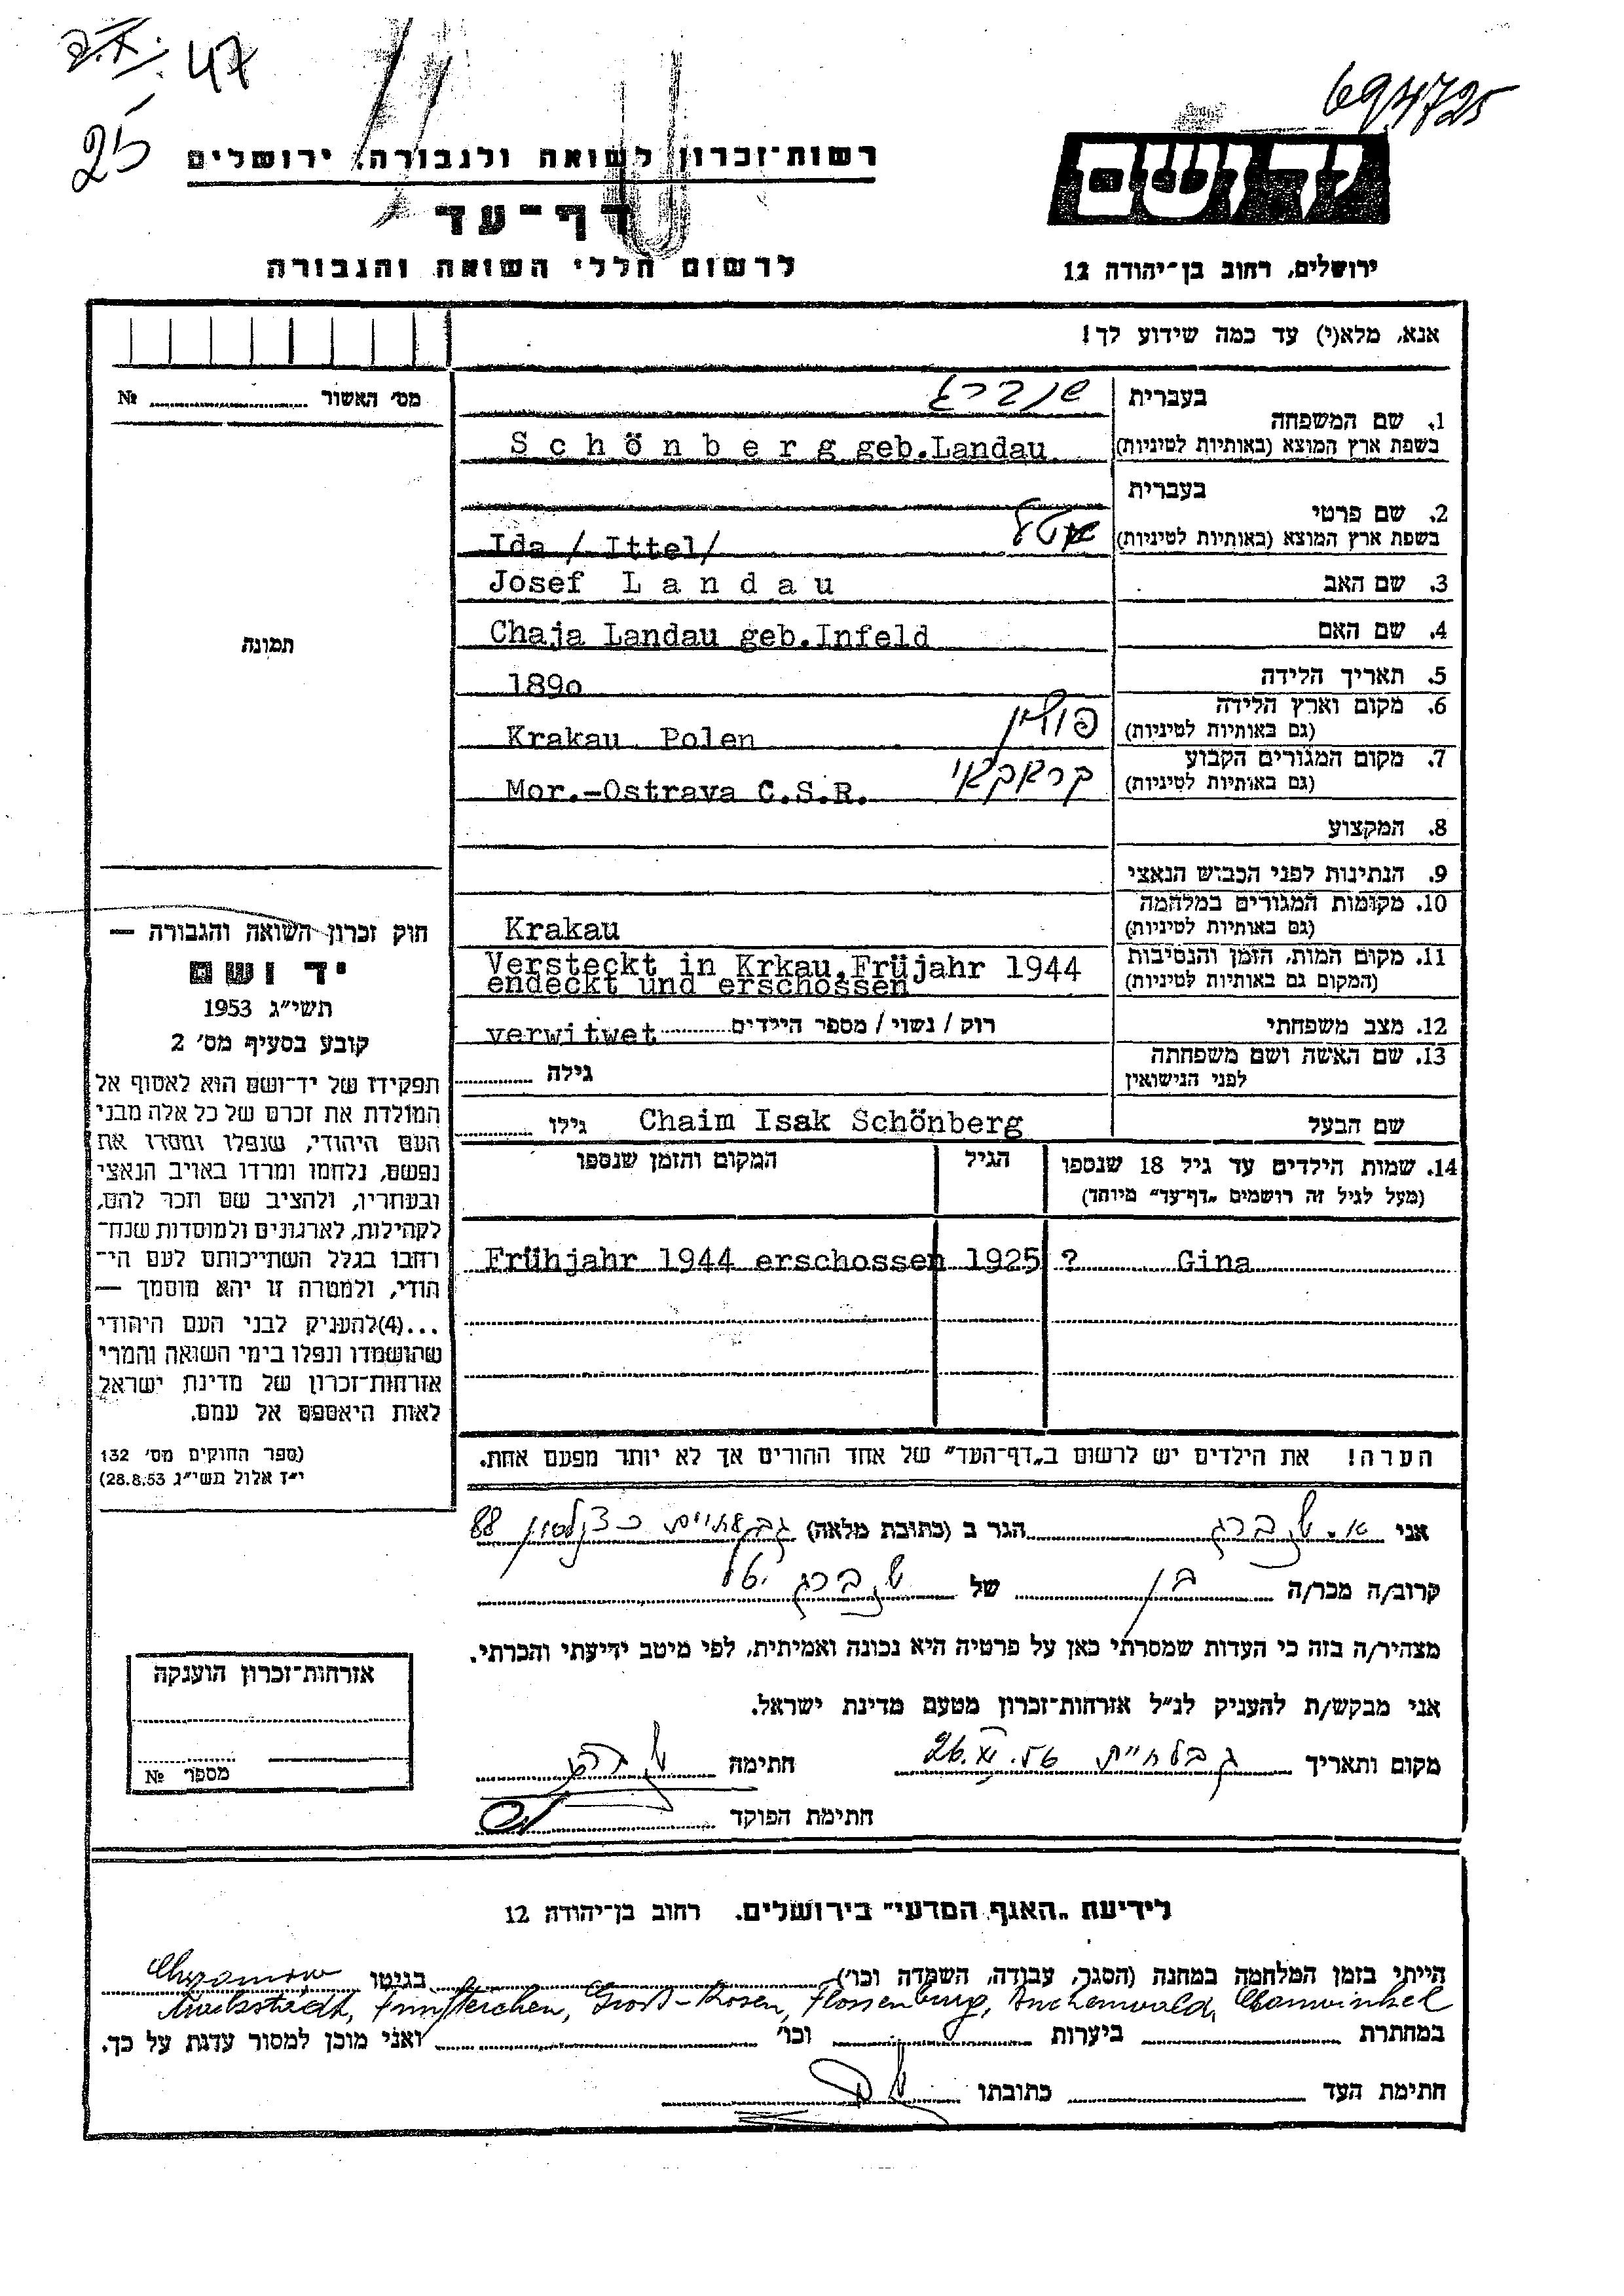 47
25
694725
רשות־זכרון לשואה ולגבורה, ירושלים
יד ושם
דף־עד
לרשום חללי השואה והגבורה
ירושלים, רחוב בן־יהודה 12
אנא, מלא(י) עד כמה שידוע לך!
מס׳ האשור № 
בעברית שנברג
1. שם המשפחה
בשפת ארץ המוצא (באותיות לטיניות) Schönberg geb.Landau
בעברית
2. שם פרטי
בשפת ארץ המוצא (באותיות לטיניות) Ida / Ittel/
3. שם האב Josef Landau
4. שם האם Chaja Landau geb.Infeld
תמונה
5. תאריך הלידה 1890
6. מקום וארץ הלידה
(גם באותיות לטיניות) Krakau Polen פולין
7. מקום המגורים הקבוע
(גם באותיות לטיניות) Mor.-Ostrava C.S.R. קראקאו
8. המקצוע
9. הנתינות לפני הכבוש הנאצי
10. מקומות המגורים במלחמה
(גם באותיות לטיניות) Krakau
11. מקום המות, הזמן והנסיבות
(המקום גם באותיות לטיניות) Versteckt in Krkau,Früjahr 1944
endeckt und erschossen
12. מצב משפחתי רוק / נשוי / מספר הילדים verwitwet
13. שם האשה ושם משפחתה
לפני הנישואין גילה
שם הבעל Chaim Isak Schönberg גילו
14. שמות הילדים עד גיל 18 שנספו הגיל המקום והזמן שנספו
(מעל לגיל זה רושמים „דף־עד” מיוחד)
Frühjahr 1944 erschossen 1925 ? Gina
הערה! את הילדים יש לרשום ב„דף־העד” של אחד ההורים אך לא יותר מפעם אחת.
חוק זכרון השואה והגבורה —
יד ושם
תשי״ג 1953
קובע בסעיף מס׳ 2
תפקידו של יד־ושם הוא לאסוף אל
המולדת את זכרם של כל אלה מבני
העם היהודי, שנפלו ומסרו את
נפשם, נלחמו ומרדו באויב הנאצי
ובעוזריו, ולהציב שם וזכר להם,
לקהילות, לארגונים ולמוסדות שנח־
רבו בגלל השתייכותם לעם הי־
הודי, ולמטרה זו יהא מוסמך —
...(4)להעניק לבני העם היהודי
שהושמדו ונפלו בימי השואה והמרי
אזרחות־זכרון של מדינת ישראל
לאות היאספם אל עמם.
(ספר החוקים מס׳ 132
י״ז אלול תשי״ג 28.8.53)
אני א. שנברג הגר ב (כתובת מלאה) גבעתיים כצנלסון 88
קרוב/ה מכר/ה בן של שנברג יטל
מצהיר/ה בזה כי העדות שמסרתי כאן על פרטיה היא נכונה ואמיתית, לפי מיטב ידיעתי והכרתי.
אני מבקש/ת להעניק לנ״ל אזרחות־זכרון מטעם מדינת ישראל.
מקום ותאריך 26. .56 חתימה
חתימת הפוקד
אזרחות־זכרון הוענקה
מספר №
לידיעת „האגף המדעי” בירושלים. רחוב בן־יהודה 12
הייתי בזמן המלחמה במחנה (הסגר, עבודה, השמדה וכו׳) בגיטו Chrzanow
Markstädt, Fünfteichen, Groß-Rosen, Flossenburg, Buchenwald,
במחתרת ביערות וכו׳ ואני מוכן למסור עדות על כך.
חתימת העד כתובתו